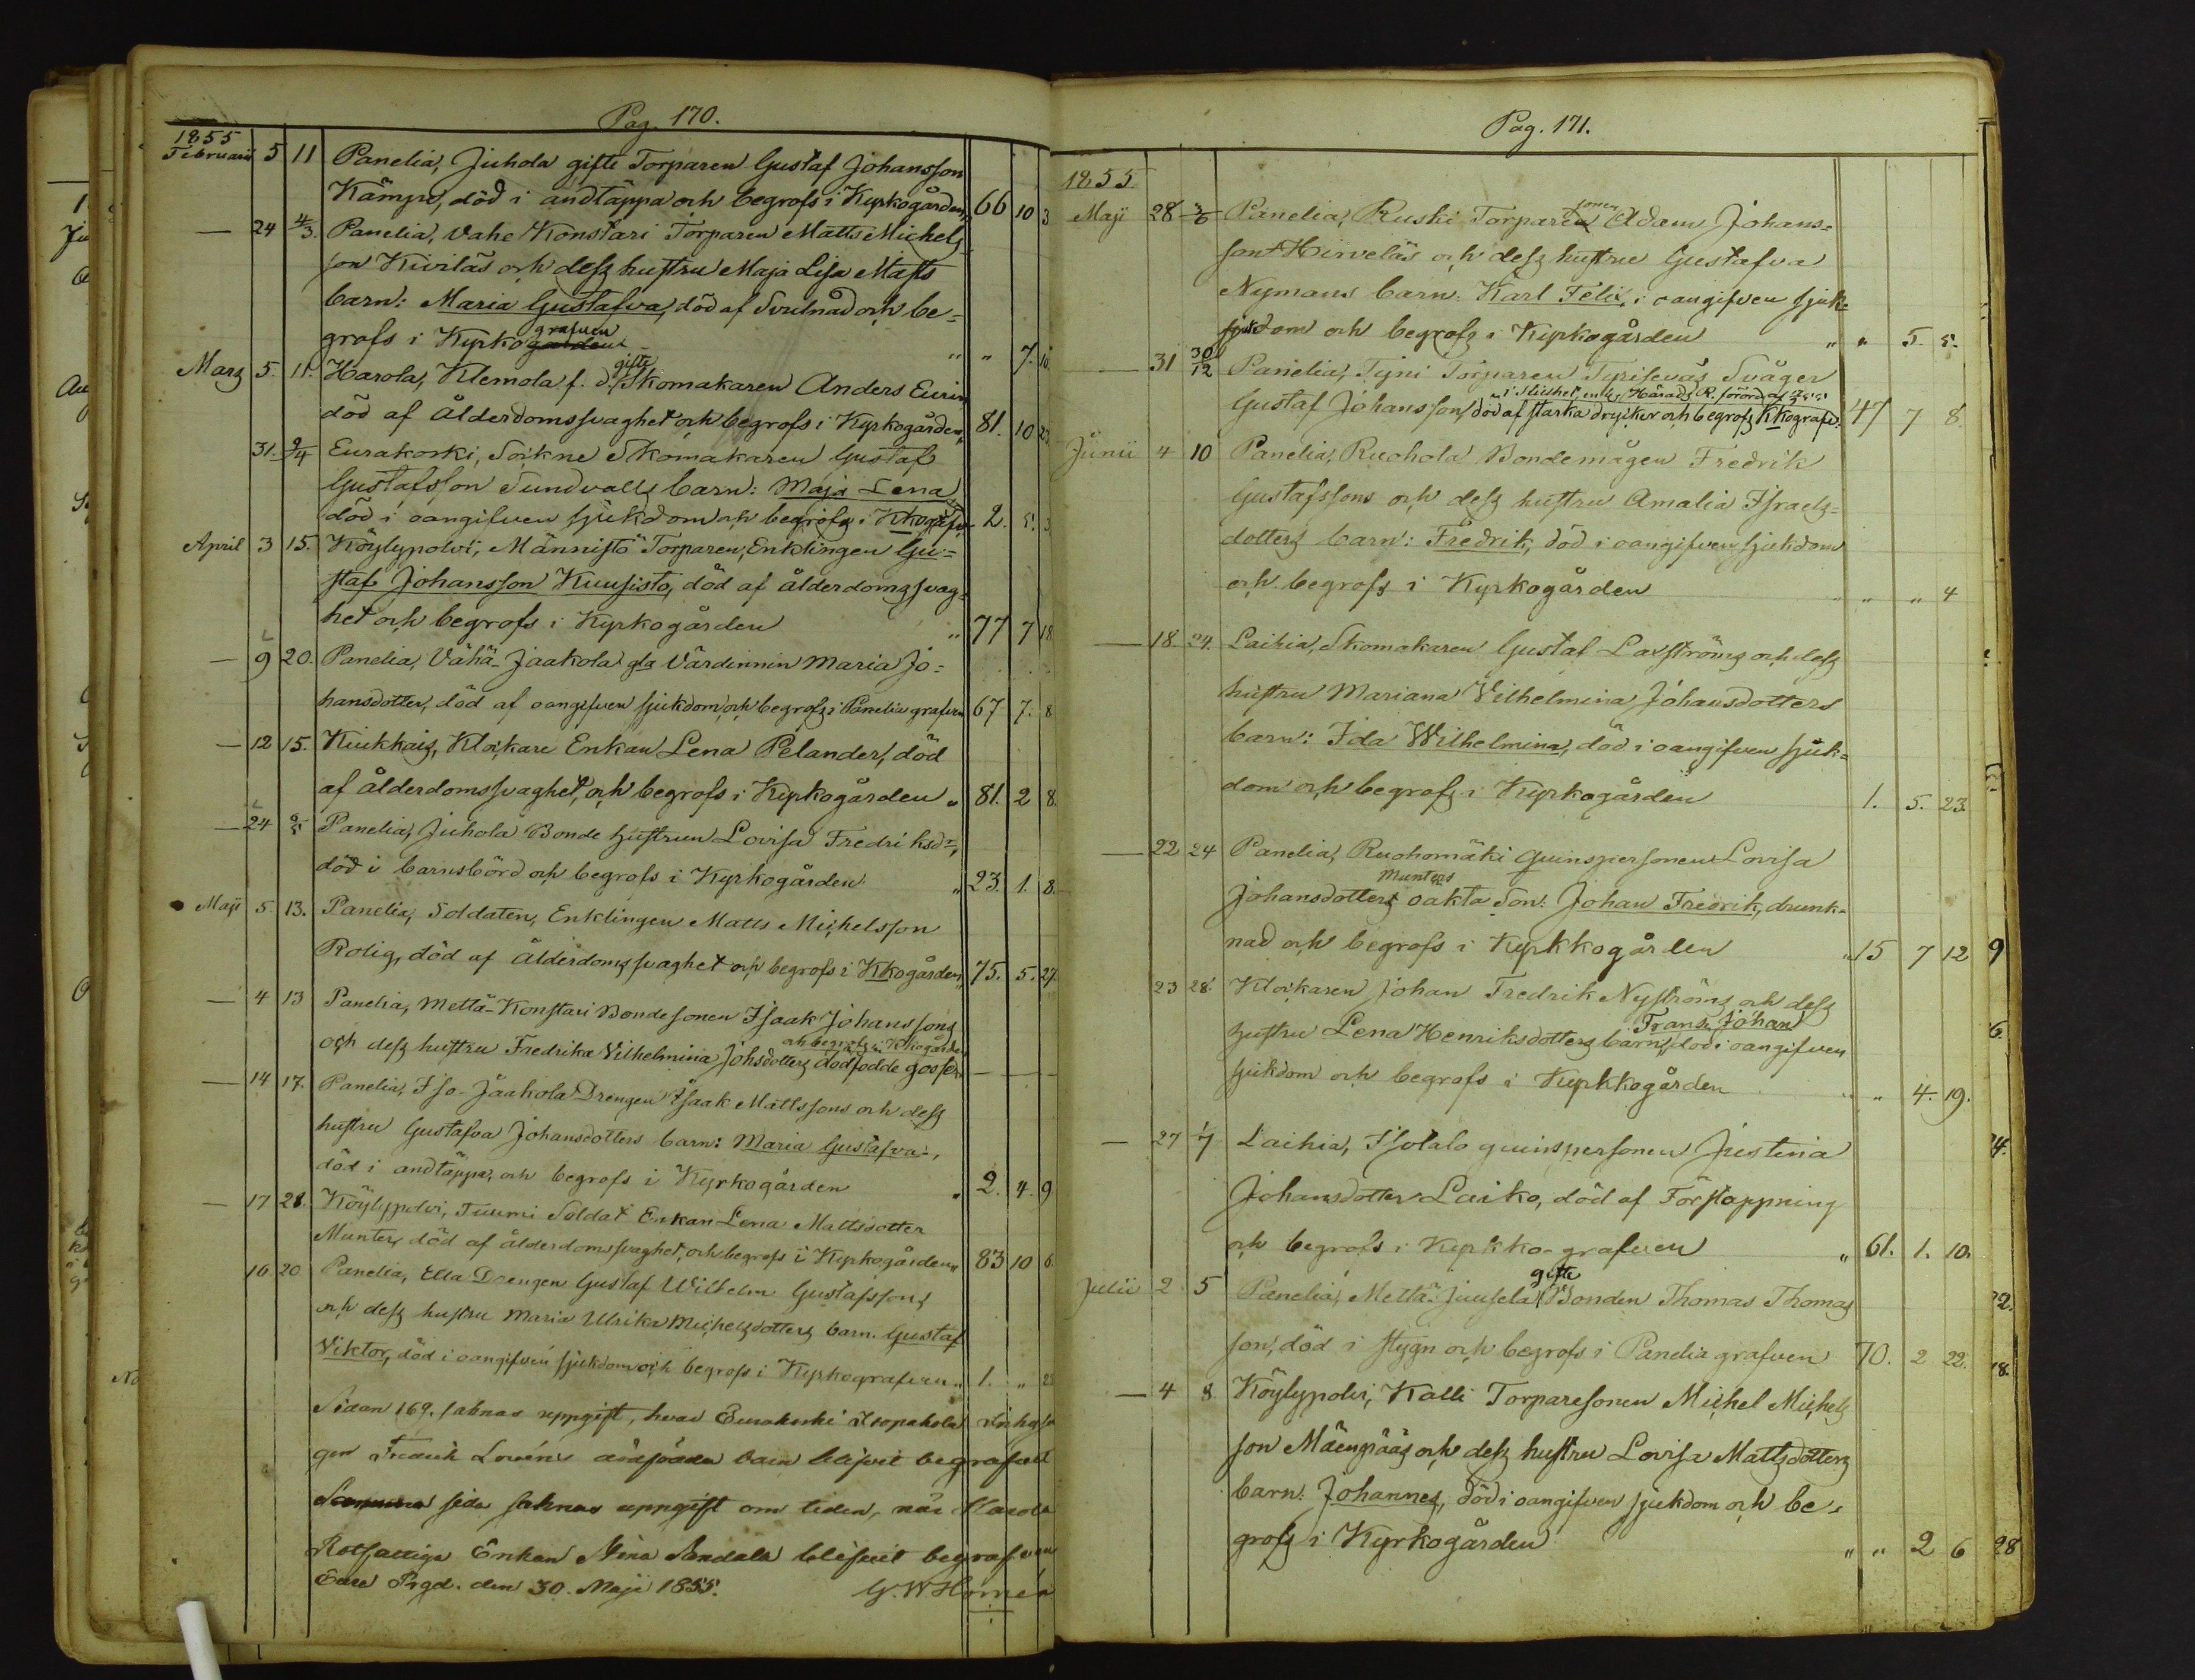 Pag. 170.
1855
Februarii 5 11 Panelia, Juhola gifte Torparen Gustaf Johansson
Kämpe, död i andtäppa och begrofs i Kyrkogården, 66 10 3
— 24 4/3. Panelia, Vahe Konstari Torparen Matts Michels
son Kiviläs och desz hustru Maja Lisa Matts
barn: Maria Gustafva, död af Svulnad och be-
grafven
grofs i Kyrkogården " " 7. 10
gifte
Mars 5. 11. Harola, Klemola f. d. Skomakaren Anders Eurin
död af ålderdomssvaghet och begrofs i Kyrkogården, 81. 10 23
31. 9/4 Eurakoski, Sockne Skomakaren Gustaf
Gustafsson Sundvalls barn: Maja Lena
död i oangifven sjukdom och begrofs i Kkografv. 2. 5. 3
April 3 15. Köylypolvi, Männistö Torparen, Enklingen Gu-
staf Johansson Kuusisto, död af ålderdomssvag-
het och begrofs i Kyrkogården " 77 7 18
— 9 20. Panelia, Vähä-Jaakola gla Värdinnin Maria Jo-
hansdotter, död af oangifven sjukdom, och begrofs i Panelia grafven 67 7. 8
— 12 15. Kiukkais, Klockare Enkan Lena Pelander, död
af ålderdomssvaghet, och begrofs i Kyrkogården " 81. 2 8.
— 24 9/5 Panelia, Juhola Bonde hustrun Lovisa Fredriksdr,
död i barnsbörd och begrofs i Kyrkogården " 23. 1. 8.
Maji 5. 13. Panelia, Soldaten, Enklingen Matts Michelsson
Rolig, död af ålderdomssvaghet och begrofs i Kkogården, 75. 5. 27.
— 4 13 Panelia, Mettä-Konstari Bondesonen Isaak Johanssons
och begrofs i Kkogården
och desz hustru Fredrika Vilhelmina Johsdotters dödfödde gosse — — —
— 14 17. Panelia, Iso-Jaakola Drengen Isaak Mattssons och desz
hustru Gustafva Johansdotters barn: Maria Gustafva,
död i andtäppa, och begrofs i Kyrkogården " 2. 4. 9
— 17 28. Köylypolvi, Tuumi Soldat Enkan Lena Mattsdotter
Munter, död af ålderdomssvaghet, och begrofs i Kyrkogården " 83 10 6
16 20 Panelia, Ella Drengen Gustaf Wilhelm Gustafssons
och desz hustru Maria Ulrika Michelsdotters barn. Gustaf
Viktor, död i oangifven sjukdom och begrofs i Kyrkografven " 1. " 23
Sidan 169. saknas uppgift, hvar Eurakoski
gen Fredrik Lovéns dödfödda barn blifvit begrafvet
sida saknas uppgift om tiden, när Harola
Rotfattiga Enkan Stina Sandala blifvit begrafven
Eura Prgd. den 30. Maji 1855. G. W. Homén
Pag. 171.
1855
sonen
Maji 28 3/6 Panelia, Ruski Torparen Adam Johans-
son Hirveläs och desz hustru Gustafva
Nymans barn: Karl Felix, i oangifven sjuk-
dom och begrofs i Kyrkogården " " 5. 5.
— 31 30/12 Panelia, Tyni Torparen Tyriseväs Svåger
i Stillhet, enl. Härads R. förord. af
Gustaf Johansson, död af starka drycker och begrofs Kkografv. 47 7 8.
Junii 4 10 Panelia, Ruohola Bondemågen Fredrik
Gustafssons och desz hustru Amalia Israels-
dotters barn: Fredrik, död i oangifven sjukdom
och begrofs i Kyrkogården " " 4
— 18 24. Laihia, Skomakaren Gustaf Laxströms och desz
hustru Mariana Vilhelmina Johansdotters
barn: Ida Wilhelmina, död i oangifven sjuk-
dom och begrofs i Kyrkogården 1. 5. 23.
— 22 24 Panelia, Ruohomäki Quinspersonen Lovisa
Munters
Johansdotters oäkta Son: Johan Fredrik, drunk-
nad och begrofs i Kyrkkogården " 15 7 12
23 28. Klockaren Johan Fredrik Nyströms och desz
Frans Johan
hustru Lena Henriksdotters barn, död i oangifven
sjukdom och begrofs i Kyrkkogården " " 4. 19.
— 27 1/7 Laihia, Isotalo quinspersonen Justina
Johansdotter Laiko, död af Förstoppning
och begrofs i Kyrkko-grafven " 61. 1. 10.
gifte
Julii 2 5 Panelia, Mettä-Juusela Bonden Thomas Thomas
son, död i stygn och begrofs i Panelia grafven 70. 2 22.
— 4 8 Köylypolvi, Kalli Torparesonen Michel Michels
son Mäenpääs och desz hustru Lovisa Mattsdotters
barn: Johannes, död i oangifven sjukdom och be-
grofs i Kyrkogården " " 2 6